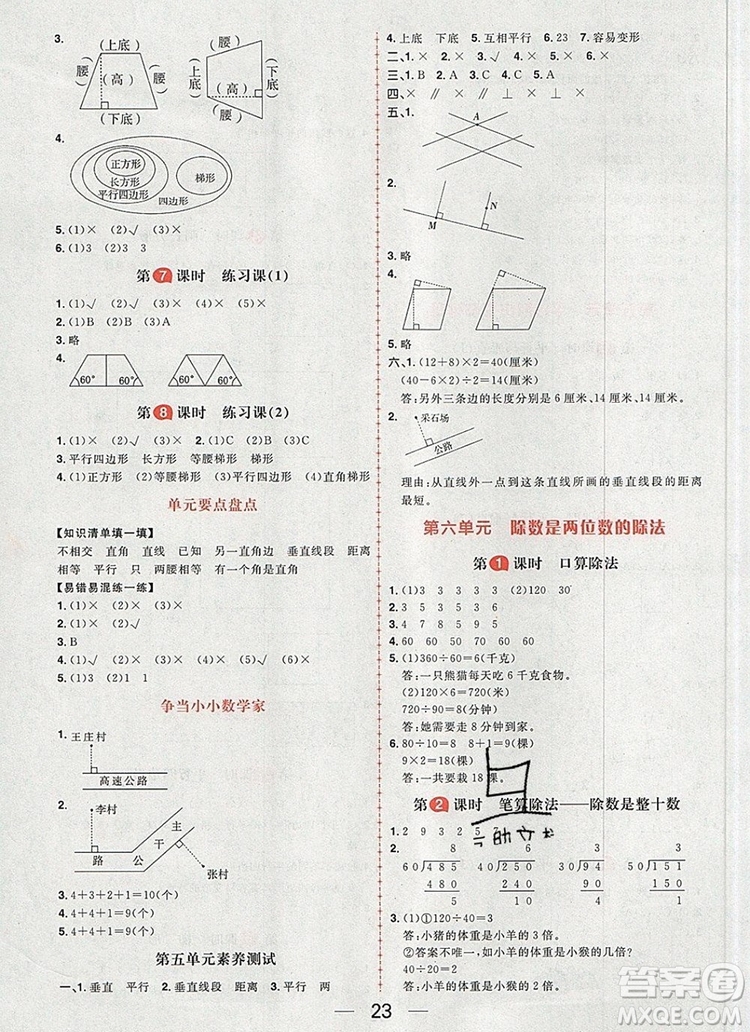 3.
（上底）
（腰）
（腰）
（高）
（下底）
（腰）
（上底）
（下底）
（高）
（腰）
4.
正方形
长方形
平行四边形
四边形
梯形
5.(1)× (2)√ (3)×
6.(1)3 (2)3 3
第7课时 练习课(1)
1.(1)√ (2)√ (3)× (4)× (5)×
2.(1)B (2)B (3)A
3.略
4.
60° 60° 60° 60°
第8课时 练习课(2)
1.(1)× (2)√ 2.(1)C (2)B (3)B
3.平行四边形 长方形 等腰梯形 梯形
4.(1)正方形 (2)等腰梯形 (3)平行四边形 (4)直角梯形
单元要点盘点
【知识清单填一填】
不相交 直角 直线 已知直线 直角边 垂直线段 距离
相等 平行 只 两腰相等 容易变形
【易错易混练一练】
1.(1)× (2)× 2.(1)√ (2)× (3)√
3.B
4.(1)√ (2)× (3)× (4)√
5.(1)2 (2)1 (3)无数
争当小小数学家
1.
王庄村
高速公路
2.
李村
主
干
公
路
张村
3.4+3+2+1=10(个)
4.4+4+1=9(个)
第五单元素养测试
一、1.垂直 平行 2.垂直线段 距离 3.平行 两
4.上底 下底 5.互相平行 6.23 7.容易变形
二、1.× 2.× 3.√ 4.× 5.×
三、1.B 2.C 3.A 4.D 5.A
四、× ∥ ∥ ⊥ ⊥ ×
五、1.
A
2.
M
N
3.略
4.
5.略
六、1.(12+8)×2=40(厘米)
(40-6×2)÷2=14(厘米)
答:另外三条边的长度分别是6厘米、14厘米、14厘米。
2.
采石场
公路
理由:从直线外一点到这条直线所画的垂直线段的距离
最短。
第六单元 除数是两位数的除法
第1课时 口算除法
1.(1)3 3 3 3 3 (2)120 30
2.4 2 3 8 7 6
3.4 3 7 8 5 9 5
4.60 60 50 60 70 50
5.(1)360÷60=6(千克)
答:一只熊猫每天吃6千克食物。
(2)120×6=720(米)
720÷90=8(分钟)
答:她需要走8分钟到家。
6.80÷10=8(棵) 8+1=9(棵)
9×2=18(棵)
答:一共要栽18棵。
第2课时 笔算除法——除数是整十数
1.2 9 3 2 5
2.
8 6 3 3
60)485 40)250 30)94 20)65
480 240 90 60
5 10 4 5
3.(1)①120÷40=3
答:小猪的体重是小羊的3倍。
②答案不唯一,如小羊的体重是小猴的几倍?
40÷20=2
答:小羊的体重是小猴的2倍。
23
答案圈
MXQE.COM